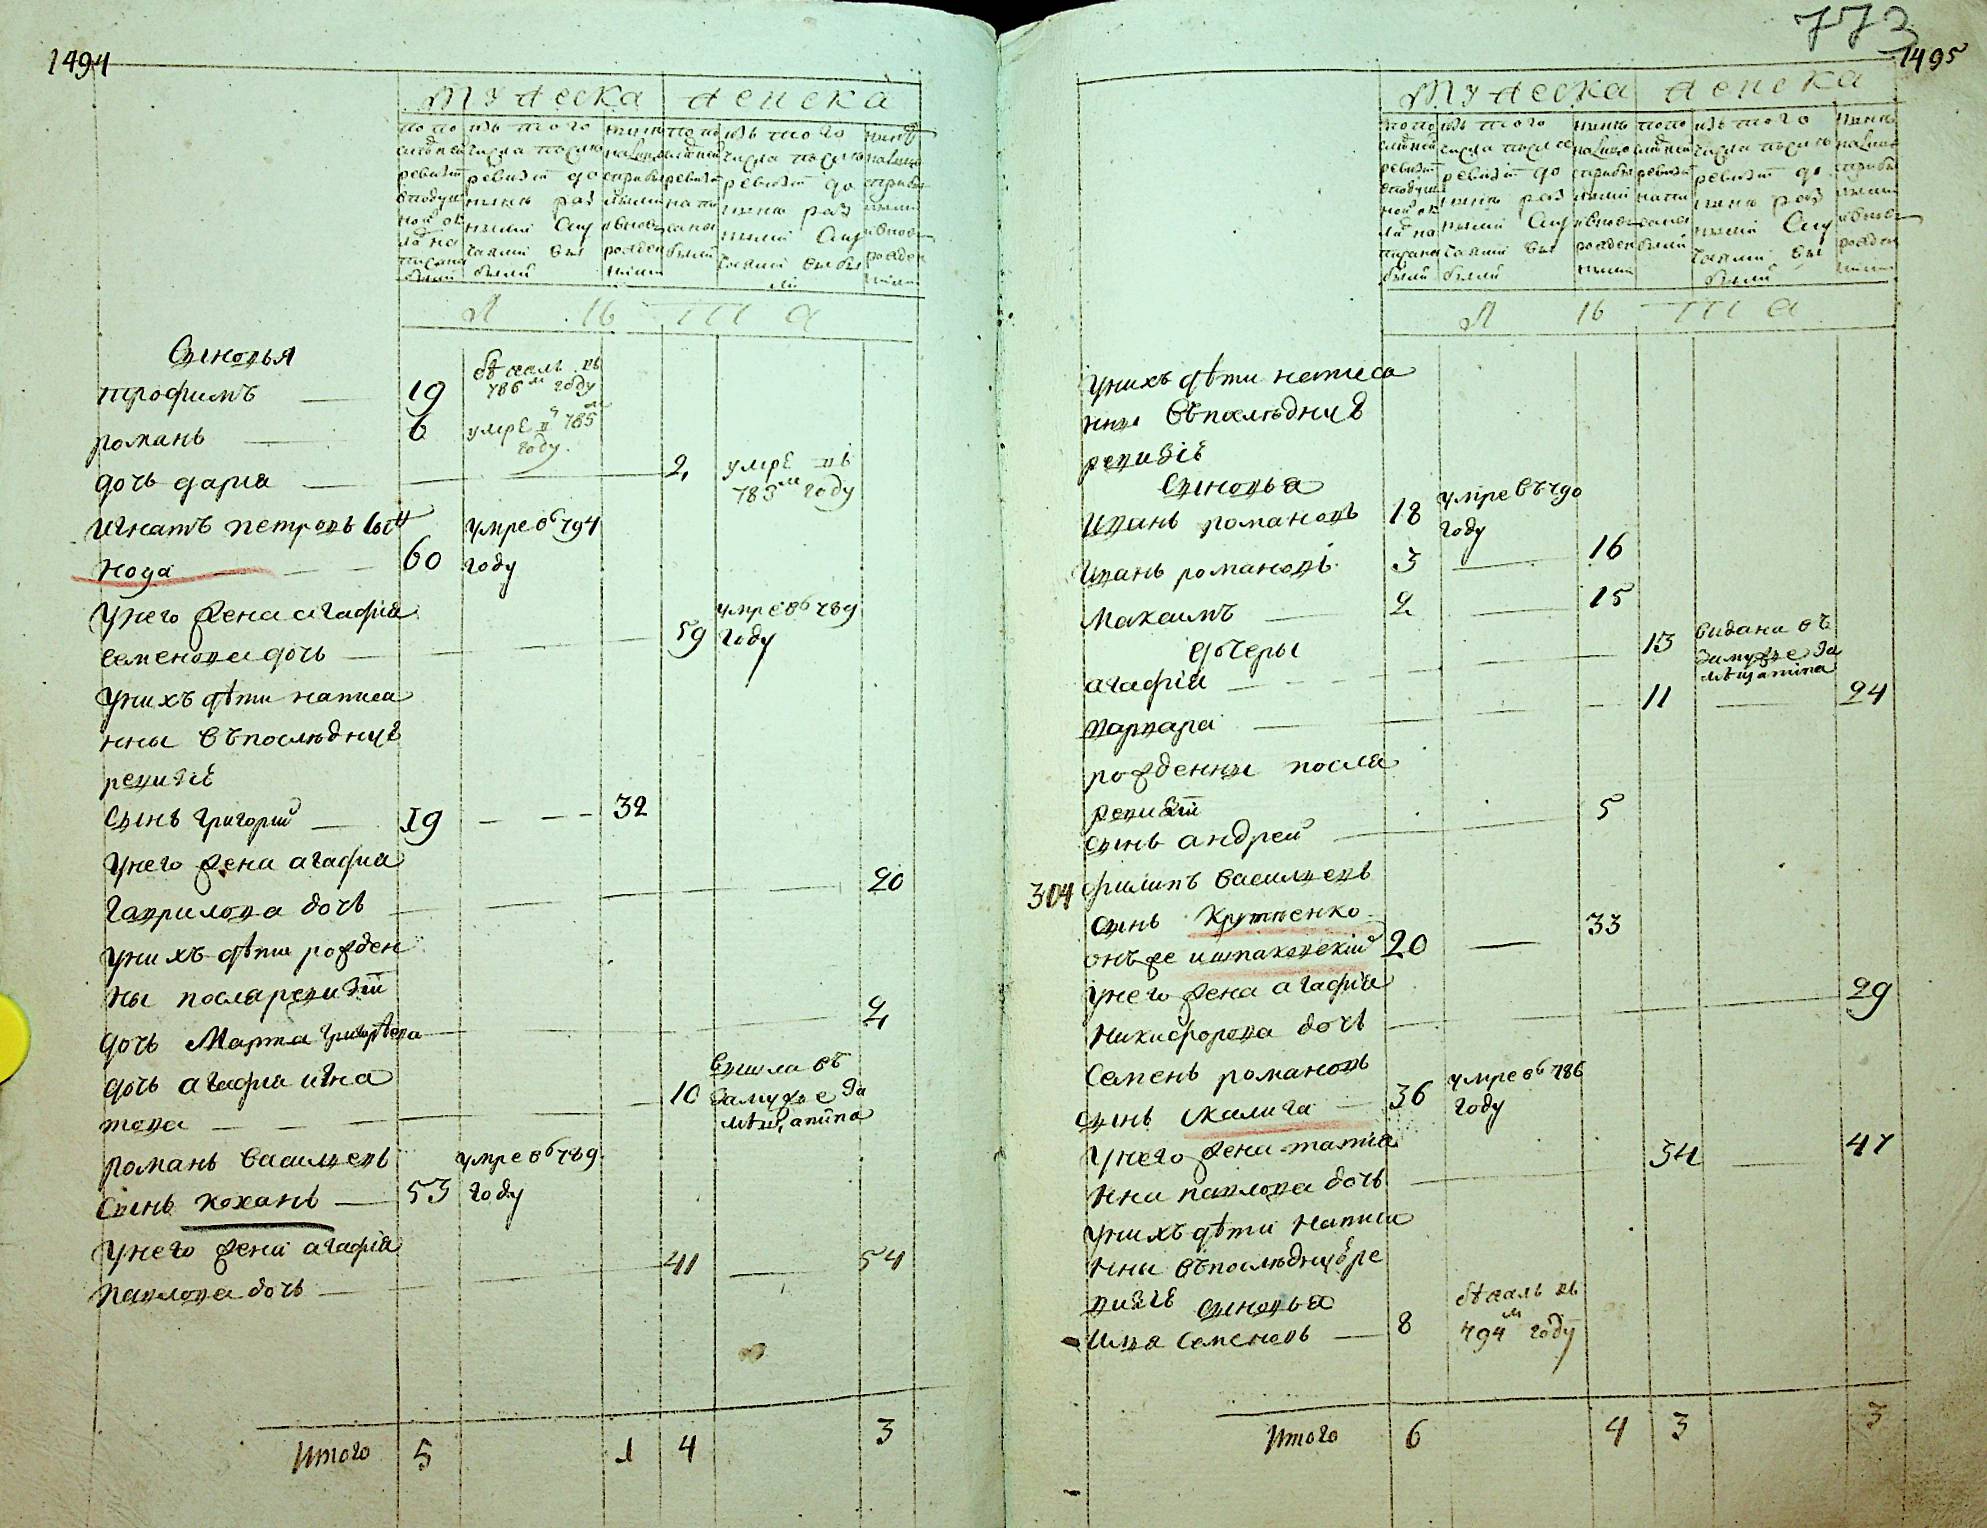 1494
мужеска женска
по по
следней
ревизіи
в подуш
ной ок
лад на
писана
были
изъ того
числа после
ревизіи до
ныне раз
ными слу
чаями вы
были
ныне
на лицо
с прибы
лыми
и вновь
рожден
ными
по по
следней
ревизіи
напи
сана
были
изъ того
числа после
ревизіи до
ныне раз
ными слу
чаями выбы
ли
ныне
на лицо
с прибы
лыми
и вновь
рожден
ными
Л ѣ т а
Сыновья
трофимъ 19 бѣжалъ въ 786м году
романъ 6 умре в 785м году
дочь дарia 2 умре въ 783м году
Игнатъ петровъ сынъ
60 умре въ 794 году
у него жена агафiя
семенова дочь 59 умре въ 789 году
у нихъ дѣти написа
нны въ последнуе
ревизiе
Сынъ григорий 19 32
у него жена агафиа
гаврилова дочь 20
у нихъ дѣти рожден
ны после ревизiи
дочь Марта григорѣева 2
дочь агафиа игна
това 10 вишла въ замужже за мѣщанина
романъ васильевъ
сынъ коханъ 53 умре въ 789 году
у него жена агафiя
павлова дочь 41 54
Итого 5 1 4 3
773
1495
мужеска женска
по по
следней
ревизіи
в подуш
ной ок
лад на
писана
были
изъ того
числа после
ревизіи до
ныне раз
ными слу
чаями вы
были
ныне
на лицо
с прибы
лыми
и вновь
рожден
ными
по по
следней
ревизіи
напи
сана
были
изъ того
числа после
ревизіи до
ныне раз
ными слу
чаями вы
были
ныне
на лицо
с прибы
лыми
и вновь
рожден
ными
Л ѣ т а
у нихъ дѣти написа
нны въ последнуе
ревизiе
Сыновья
Иванъ романовъ 18 умре въ 790 году
Иванъ романовъ 3 16
Максимъ 2 15
дочеры
агафiя 13 видана въ замужже за мѣщанина
варвара 11 24
рожденны после
ревизiи
сынъ андрей 5
304 филипъ васильевъ
сынъ Крутпенко 33
онъ же шпаковскiй 20
у него жена агафiя
никифорова дочь 29
семенъ романовъ
сынъ скалига 36 умре въ 786 году
у него жена татiа
нна павлова дочь 34 47
у нихъ дѣти написа
нни въ последнуе ре
визiе сыновья
Илья семеновъ 8 бѣжалъ въ 794м году
Итого 6 4 3 3